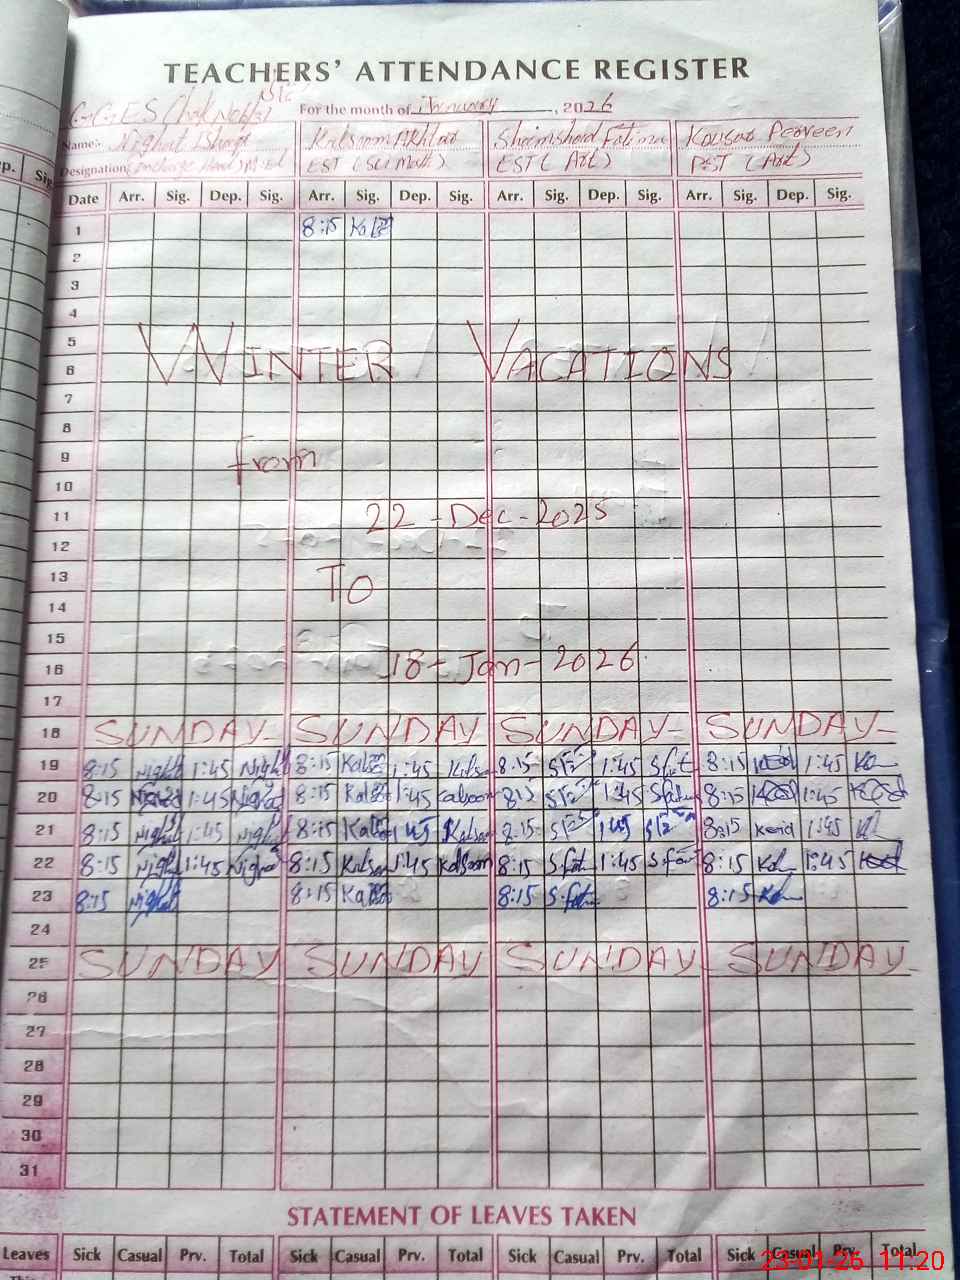 TEACHERS' ATTENDANCE REGISTER
G.G.E.S Chak No
For the month of January, 2026
Name:- Nighat Kalsoom Akhtar Shamshad Fatima Kousar Perveen
Designation Incharge Head M.Ed EST (Sci Math) EST (Art) PST (Art)
p. Sig.
Date Arr. Sig. Dep. Sig. Arr. Sig. Dep. Sig. Arr. Sig. Dep. Sig. Arr. Sig. Dep. Sig.
1 8:15
2
3
4
5
WINTER VACATIONS
6
7
8
9 from
10
11 22-Dec-2025
12
13 TO
14
15
16 18-Jan-2026
17
18 SUNDAY SUNDAY SUNDAY SUNDAY
19 8:15 Nighat 1:45 Nighat 8:15 1:45 8:15 1:45 8:15 1:45
20 8:15 1:45 8:15 1:45 Kalsoom 8:15 1:45 8:15 1:45
21 8:15 Nighat 1:45 Nighat 8:15 1:45 Kalsoom 8:15 1:45 8:15 1:45
22 8:15 Nighat 1:45 Nighat 8:15 Kalsoom 1:45 Kalsoom 8:15 1:45 8:15 1:45
23 8:15 Nighat 8:15 8:15 8:15
24
25 SUNDAY SUNDAY SUNDAY SUNDAY
26
27
28
29
30
31
STATEMENT OF LEAVES TAKEN
Leaves Sick Casual Prv. Total Sick Casual Prv. Total Sick Casual Prv. Total Sick Casual Prv. Total
23-01-26 11:20